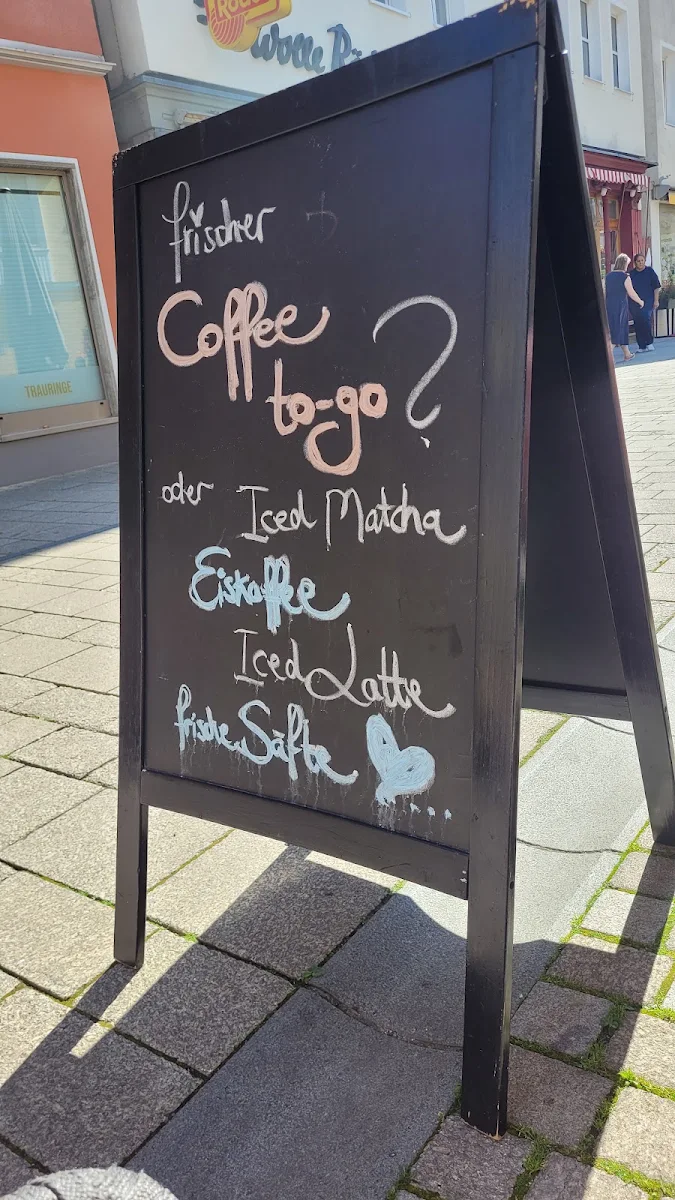 Wolle
TRAURINGE
frischer
Coffee
to-go ?
oder Iced Matcha
Eiskaffee
Iced Latte
frische Säfte ....